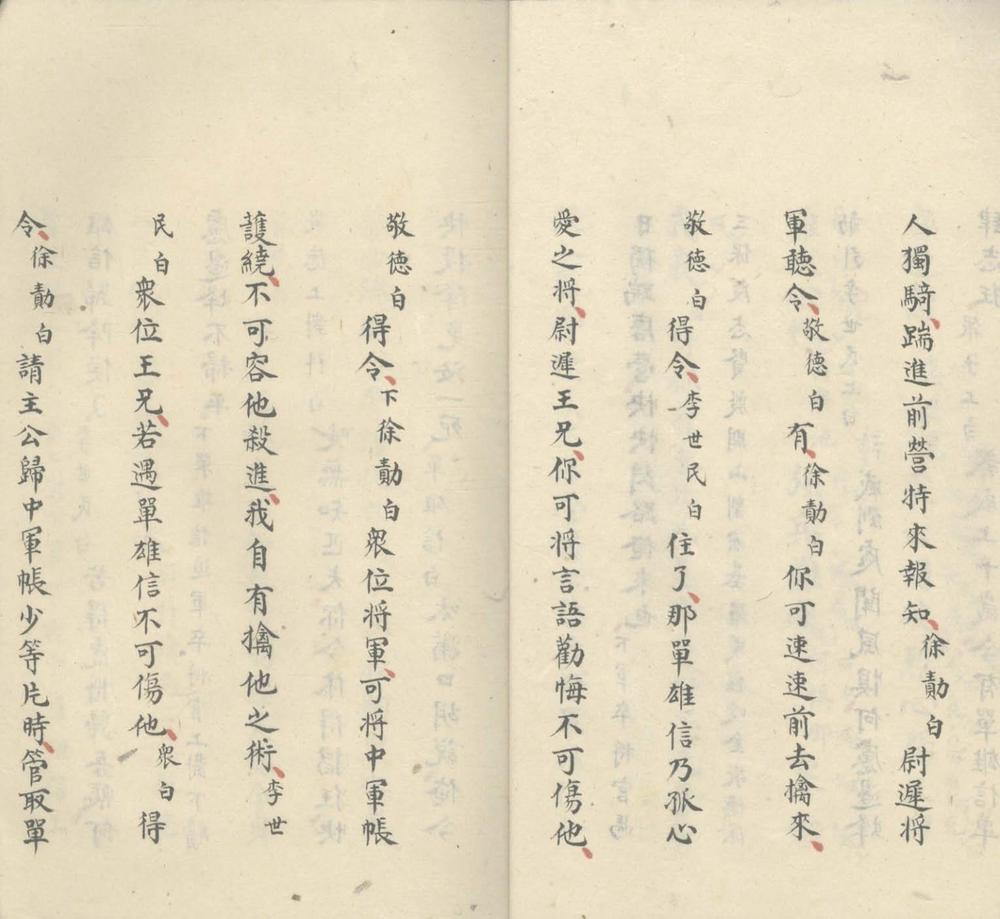 人獨騎、踹進前營特來報知、徐勣白尉遲將
軍聽令、敬德白有、徐勣白你可速速前去擒來、
敬德白得令、李世民白住了、那單雄信乃孤心
愛之將、尉遲王兄、你可將言語勸悔不可傷他、
敬德白得令、下徐勣白眾位將軍、可將中軍帳
護繞、不可容他殺進、我自有擒他之術、李世
民白眾位王兄、若遇單雄信不可傷他、眾白得
令、徐勣白請主公歸中軍帳少等片時、管取單